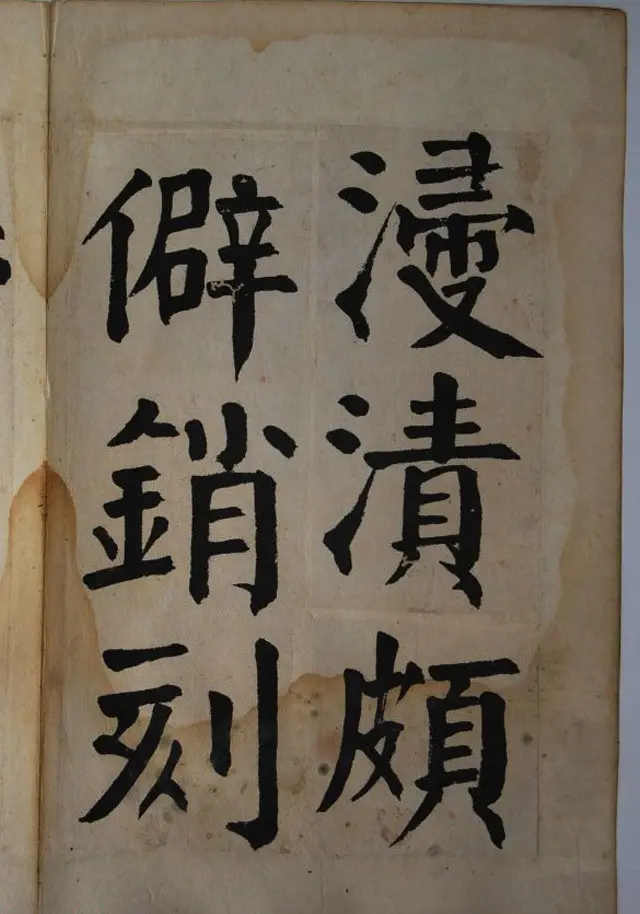 浸漬頗
僻銷刻